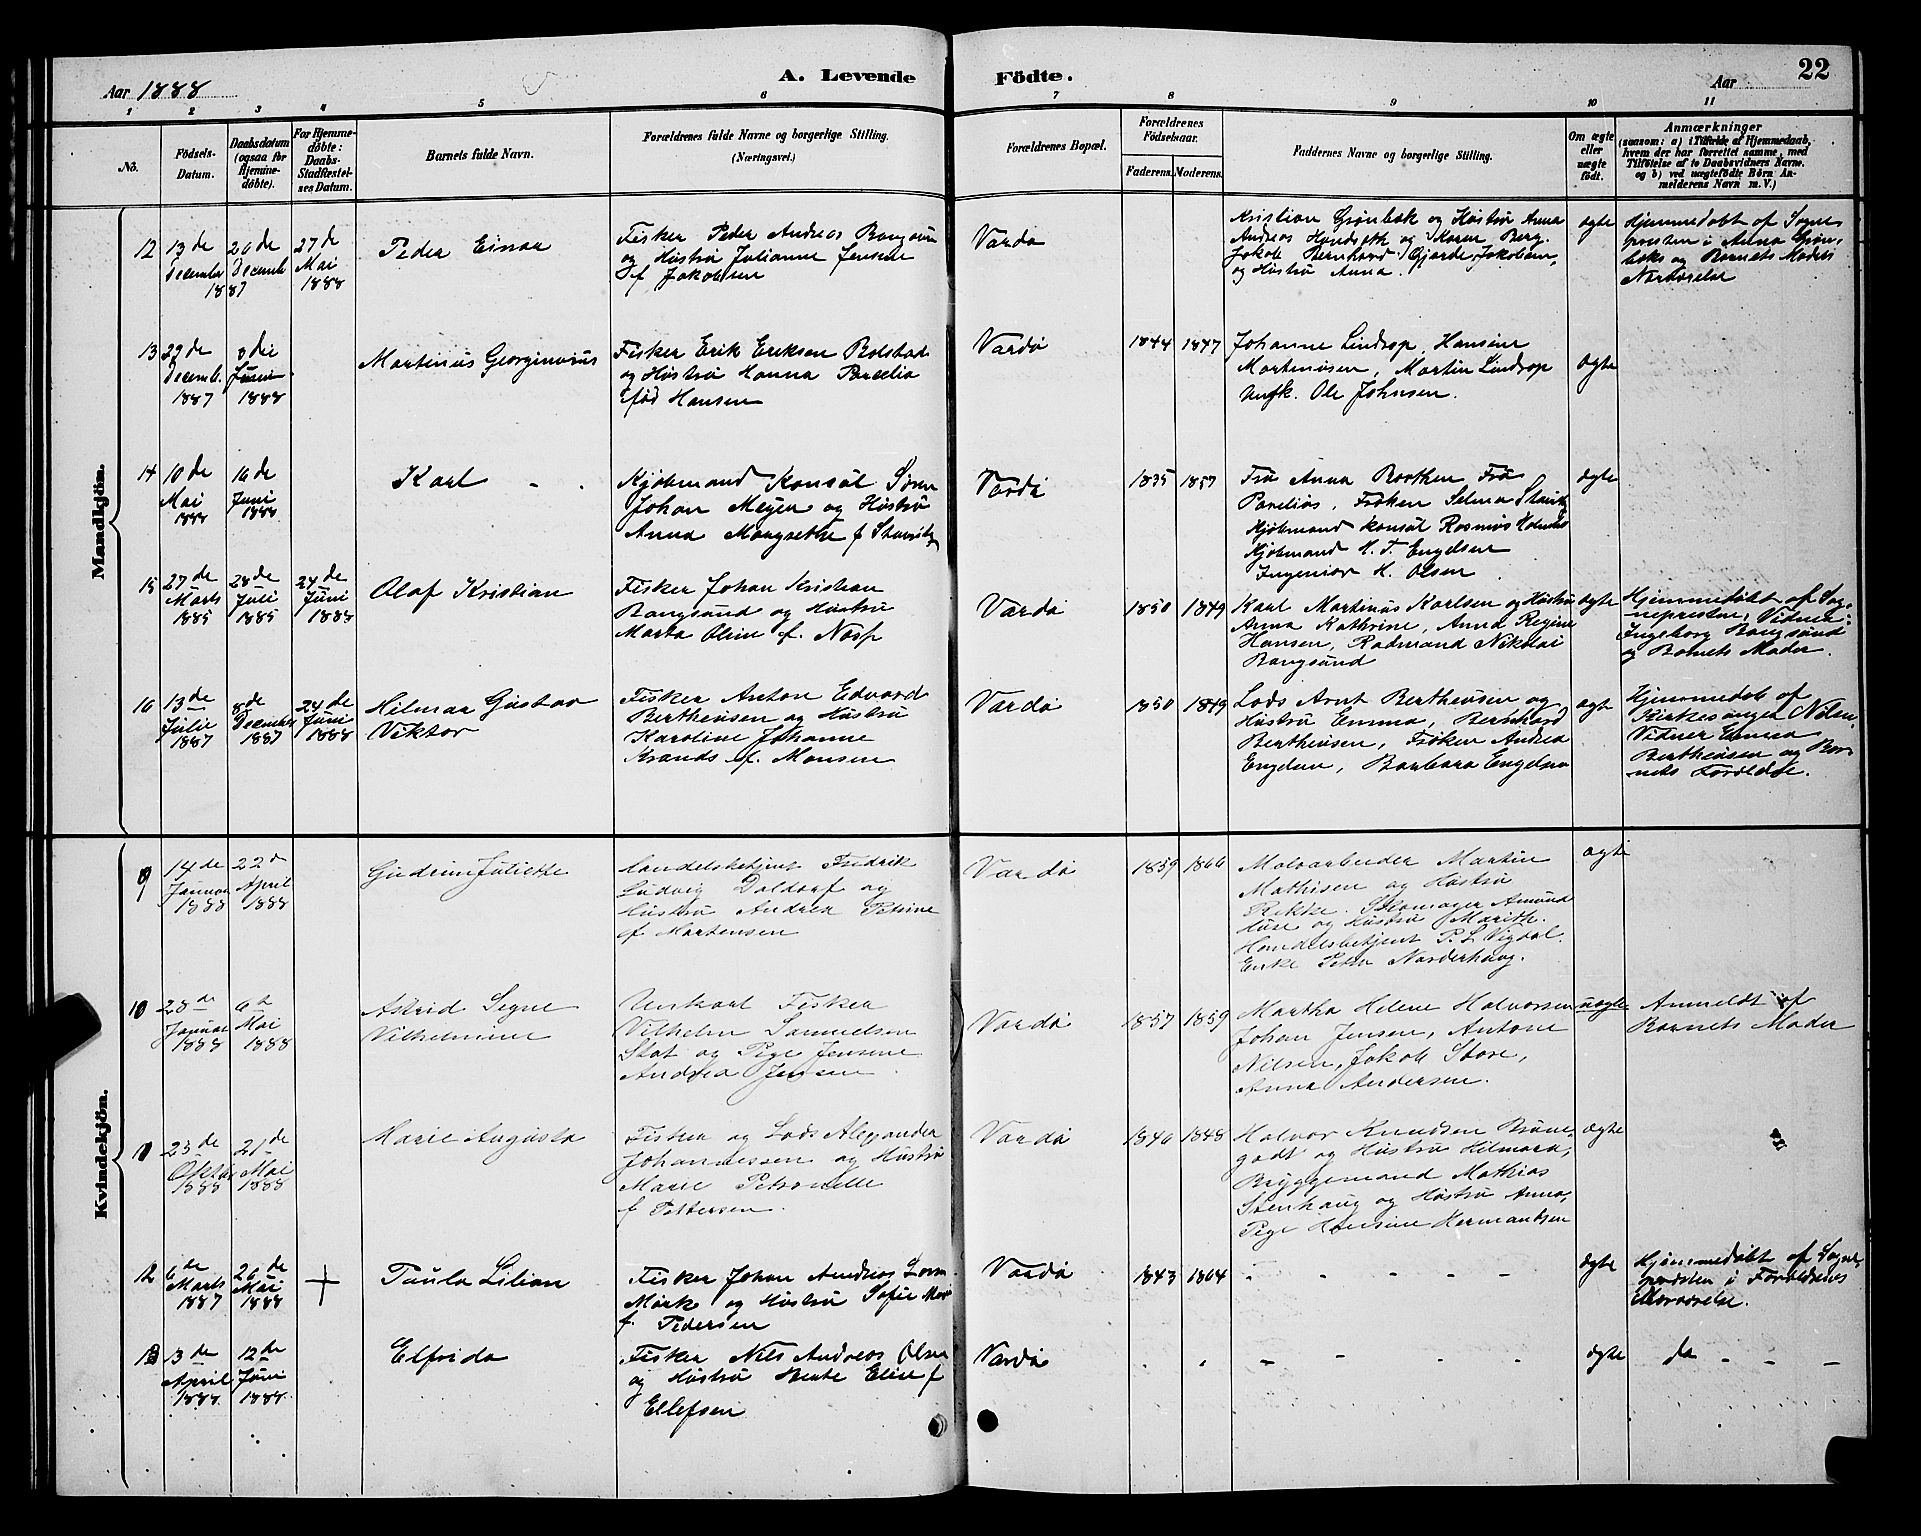 Aar 1888
A. Levende
Födte.
Aar
22
1 2 3 4 5 6 7 8 9 10 11
No.
Födsels-
Datum.
Daabsdatum
(ogsaa for
Hjemme-
döbte).
For Hjemme-
döbte:
Daabs-
Stadfæstel-
ses Datum.
Barnets fulde Navn.
Forældrenes fulde Navne og borgerlige Stilling.
(Næringsvei.)
Forældrenes Bopæl.
Forældrenes
Födselsaar.
Faderens. Moderens.
Faddernes Navne og borgerlige Stilling.
Om ægte
eller
uægte
födt.
Anmærkninger
(saasom: a) i Tilfælde af Hjemmedaab,
hvem der har forrettet samme, med
Tilföielse af to Daabsvidners Navne.
og b) ved uægtefödte Börn An-
melderens Navn m. V.)
Mandkjön.
12
13de
December
1887
20de
Decemb
27de
Mai
1888
Peder Einar
Fisker Peder Andreas
og Hustru Julianne Jensen
f Jakobsen
Vardø
Kristian Grønbek og Hustru Anna
Andreas Handseth og Karen Berg.
Jakob Bernhard Gjerde Jakobsen,
og Hustru Anna.
ægte
Hjemmedøbt af Sogne
presten i Anna Grøn-
beks og Barnets Moders
Nærværelse
13
29de
Decemb.
1887
3die
Juni
1888
Martinus Georginus
Fisker Erik Eriksen Bolstad
og Hustru Hanna
født Hansen
Vardø
1844 1847
Johanne Lindrop, Hansine
Martinusen, Martin Lindrop
Unfk. Ole Johnsen.
ægte
14
10de
Mai
1888
16de
Juni
1888
Karl - -
Kjøbmand Konsul Søren
Johan Meyer og Hustru
Anna Margrethe f
Vardø
1835 1857
Fru Anna Borthen Fru
Parelius, Frøken Selma
Kjøbmand Konsul Rasmus Holmbo
Kjøbmand H. T. Engelsen
Ingeniør H. Olsen
ægte
15
27de
Marts
1885
28de
Juli
1885
24de
Juni
1888
Olaf Kristian
Fisker Johan Kristian
Bangsund og Hustru
Marta Oline f.
Vardø
1850 1849
Karl Martinus Karlsen og Hustru
Anna Kathrine, Anna Regine
Hansen, Radmand Nikolai
Bangsund
ægte
Hjemmedøbt af Sog-
nepresten, Vidner:
Ingeborg Bangsund
og Barnets Moder.
16
13de
Julie
1887
8de
December
1887
24de
Juni
1888
Hilmar Gustav
Viktor
Fisker Anton Edvard
Bertheusen og Hustru
Karoline Johanne
f. Monsen
Vardø
1850 1849
Lods Arnt Bertheusen og
Hustru Emma, Bernhard
Bertheusen, Frøken Andrea
Engelsen, Barbara Engelsen
ægte
Hjemmedøb af
Kirkesanger Nilsen
Vidner Emma
Bertheusen og Bar-
nets Forældre.
Kvindekjön.
9
14de
Januar
1888
22de
April
1888
Gudrun Juliette
Handelsbetjent Fredrik
Ludvig Doldorf og
Hustru Andrea Petrine
f Martensen
Vardø
1859 1866
Malerarbeider Martin
Mathisen og Hustru
Rikke. Skomager Amund
Huse og Hustru Marith.
Handelsbetjent P. L. Vigdal.
Enke Petra Norderhaug.
ægte
10
28de
Januar
1888
6te
Mai
1888
Astrid Segne
Vilhelmine
Unkarl Fisker
Vilhelm Samuelsen
og Pige Jensine
Andrea Jensen
Vardø
1857 1859
Martha Helene Halvorsen
Johan Jensen, Antone
Nilsen, Jakob Store,
Anna Andersen.
uægte
Anmeldt af
Barnets Moder
11
23de
1888
21de
Mai
1888
Marie Augusta
Fisker og Lods Alexander
Johannessen og Hustru
Marie Petronelle
f Pettersen.
Vardø
1840 1848
Halvor Knudsen Brune-
godt og Hustru Hilmara,
Bryggemand Mathias
Stenhaug og Hustru Anna,
Pige Hansine Hermandsen
ægte
12
6te
Marts
1887
20de
Mai
1888
+
Paula Lilian
Fisker Johan Andreas
Mørk og Hustru Sofie
f. Pedersen
Vardø
1843 1864
- - - - -
ægte
Hjemmedøbt af Sogne
presten i Forældrenes
Nærværelse.
13
13de
April
1888
12de
Juni
1888
Elfrida
Fisker Nils Andreas Olsen
og Hustru Berte Eline f
Ellefsen
Vardø
- - - - - -
ægte
do - - -